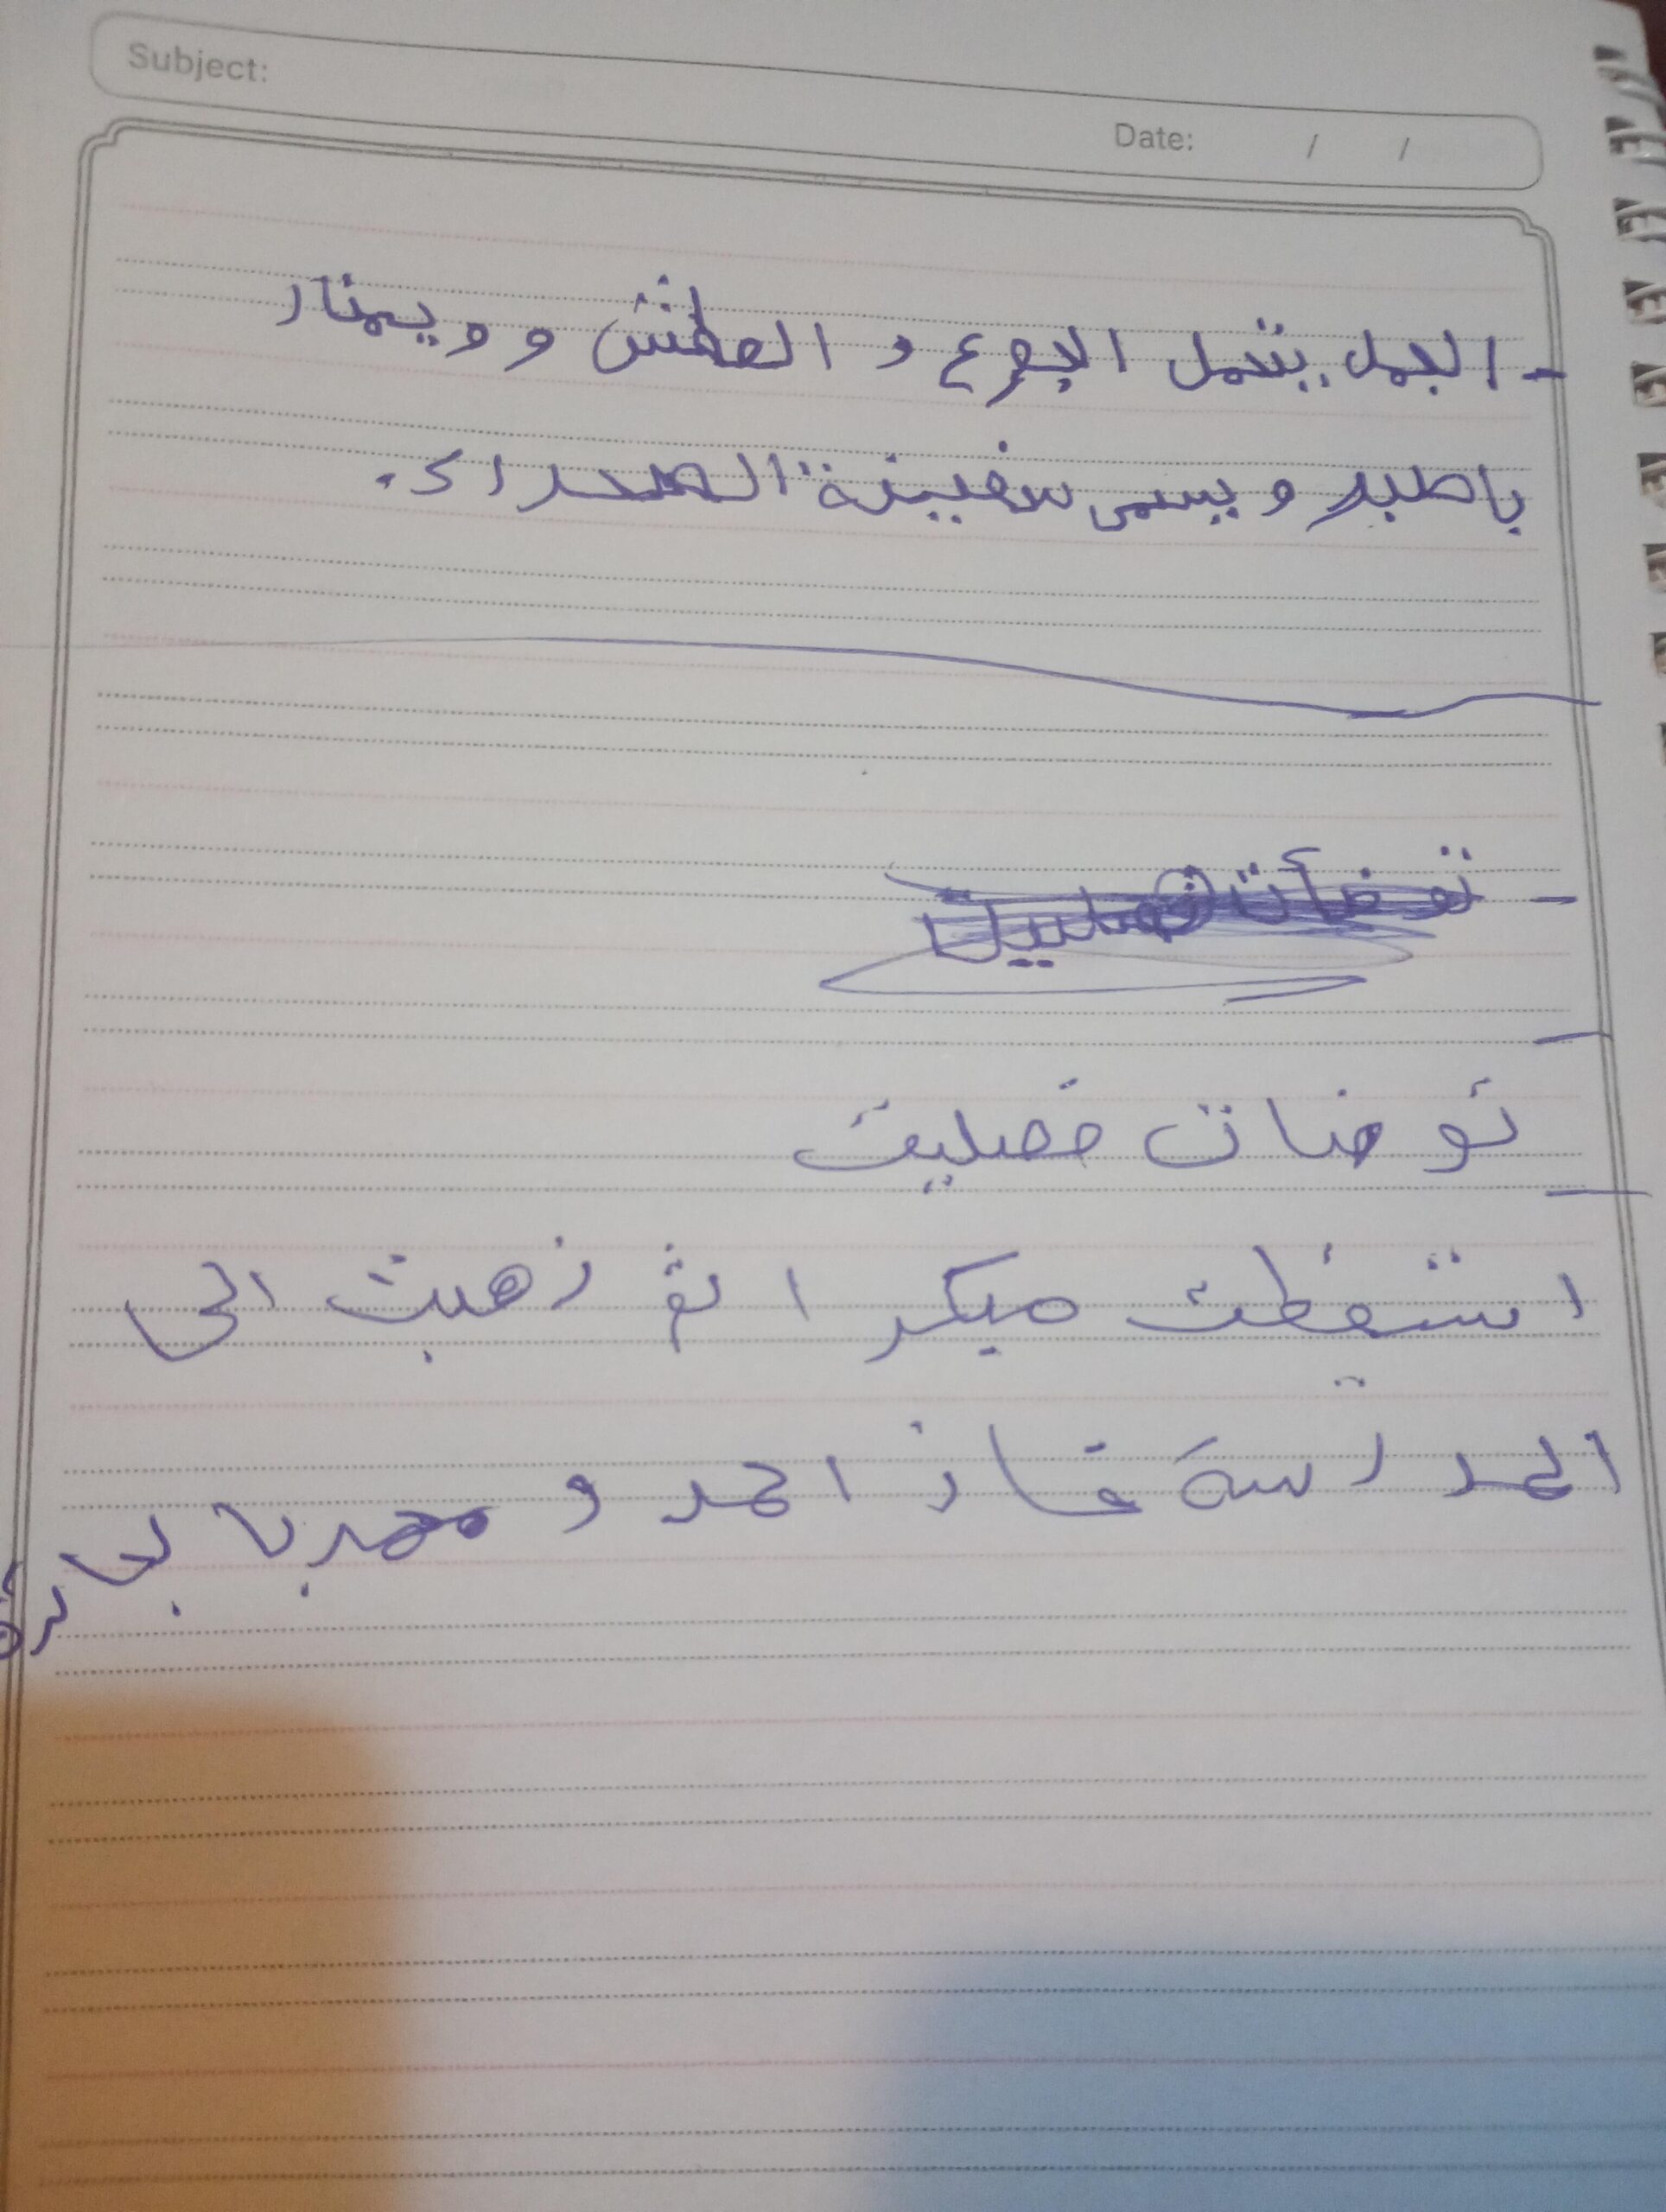 Subject:
Date: / /
- الجمل يتحمل الجوع و العطش و ويمتاز
باصبر ويسمى سفيينة الصحراء.
- توضأت فصليت
توضات فصليت
استيقظت مبكر اثم ذهبت الى
المدراسة فاز احمد و مهر با لجا ئزة